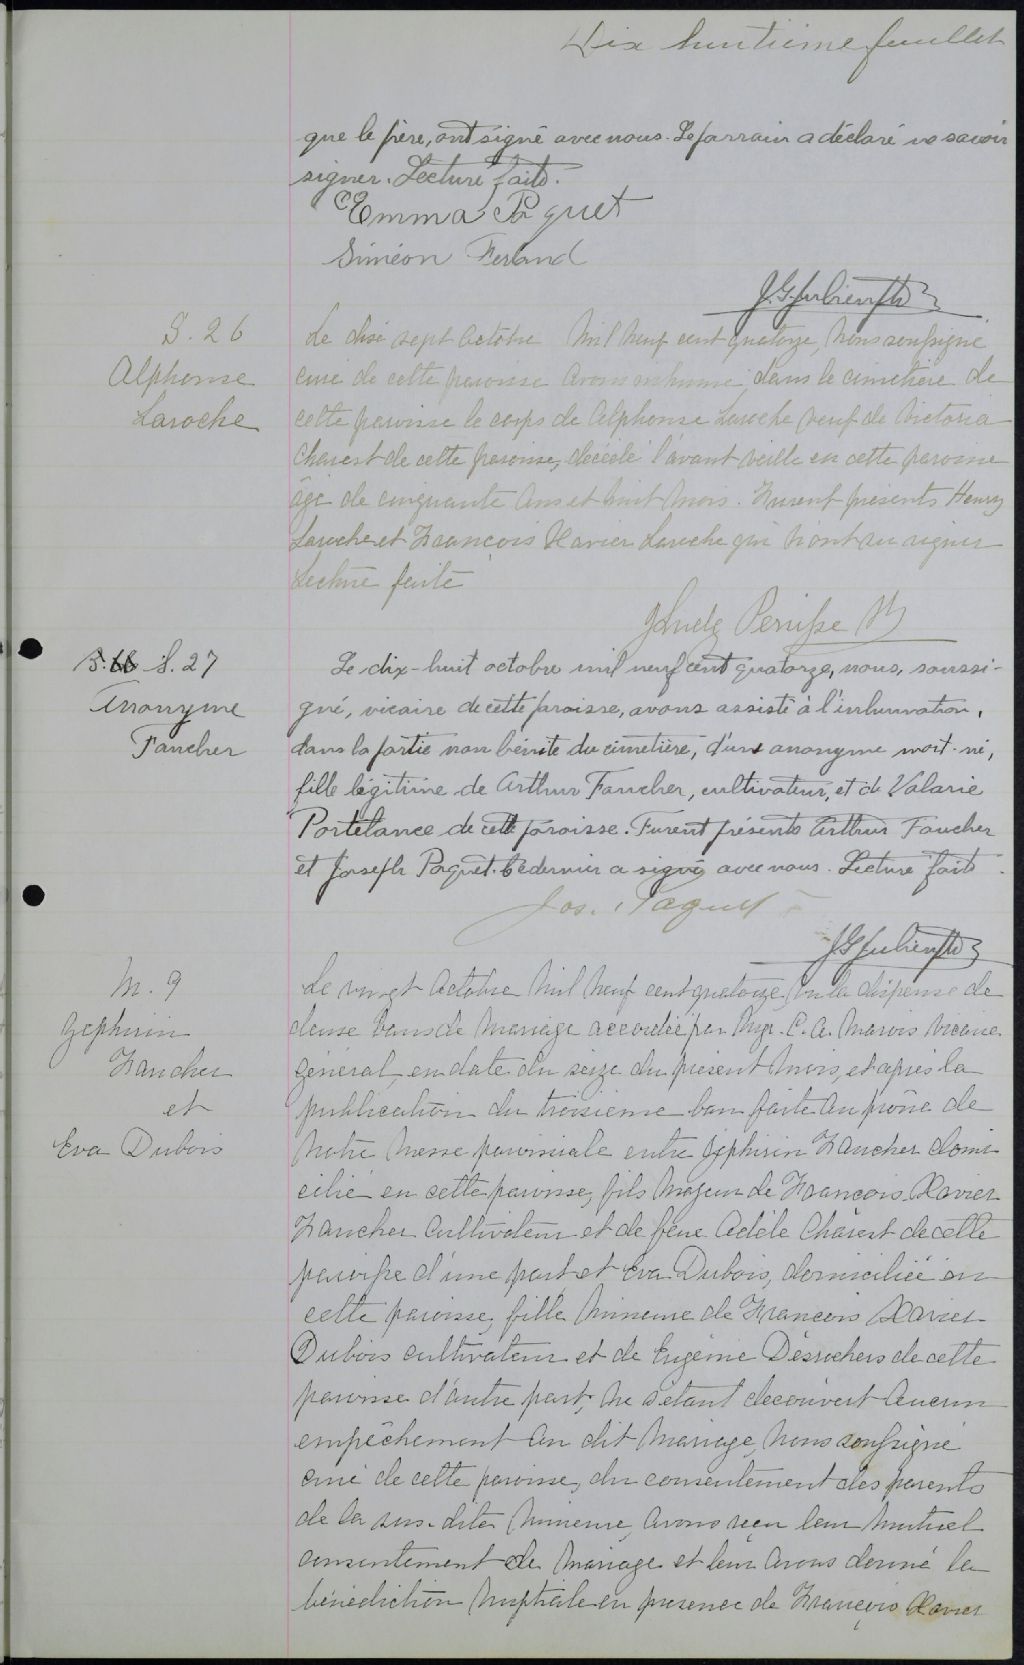 Dix huitième feuillet
que le père, ont signé avec nous. Le parrain a déclaré ne savoir
signer. Lecture faite.
Emma Paquet
Siméon Ferland
S. 26
Alphonse
Laroche
Le dix sept Octobre Mil Neuf cent quatorze, Nous soussigné
curé de cette paroisse avons inhumé dans le cimetière de
cette paroisse le corps de Alphonse Laroche veuf de Victoria
Charest de cette paroisse, décédé l'avant veille en cette paroisse
âgé de cinquante Ans et huit Mois. Furent présents Henry
Laroche et François Xavier Laroche qui n'ont su signer
Lecture faite
S. 27
Anonyme
Faucher
Le dix-huit octobre mil neuf cent quatorze, nous, soussi-
gné, vicaire de cette paroisse, avons assisté à l'inhumation,
dans la partie non bénite du cimetière, d'une anonyme mort-né,
fille légitime de Arthur Faucher, cultivateur, et de Valarie
Portelance de cette paroisse. Furent présents Arthur Faucher
et Joseph Paquet. Ce dernier a signé avec nous. Lecture faite.
Jos. Paquet
M. 9
Zéphirin
Faucher
et
Eva Dubois
Le vingt Octobre Mil Neuf cent quatorze, vu la dispense de
deux bans de Mariage accordée par Mgr. C. A. Marois Vicaire
général, en date du seize du présent Mois, et après la
publication du troisième ban faite Au prône de
Notre Messe paroissiale entre Zéphirin Faucher domi
cilié en cette paroisse, fils Majeur de François Xavier
Faucher Cultivateur et de feue Adèle Charest de cette
paroisse d'une part et Eva Dubois, domiciliée en
cette paroisse, fille Mineure de François Xavier
Dubois cultivateur et de Eugénie Desrochers de cette
paroisse d'autre part, Ne s'étant découvert Aucun
empêchement Au dit Mariage, Nous soussigné
curé de cette paroisse, du consentement des parents
de la sus-dite Mineure, Avons reçu leur Mutuel
consentement de Mariage et leur Avons donné la
bénédiction Nuptiale en présence de François Xavier